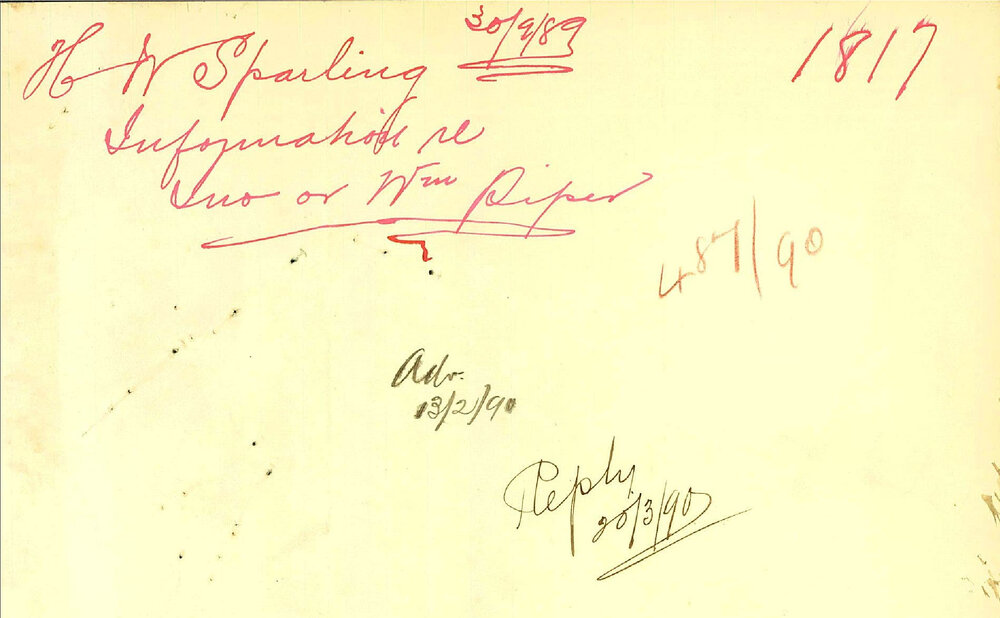 30/9/89
1817
H W Sparling
Information re
Jno or Wm Piper
487/90
Adv.
13/2/90
Reply
20/3/90